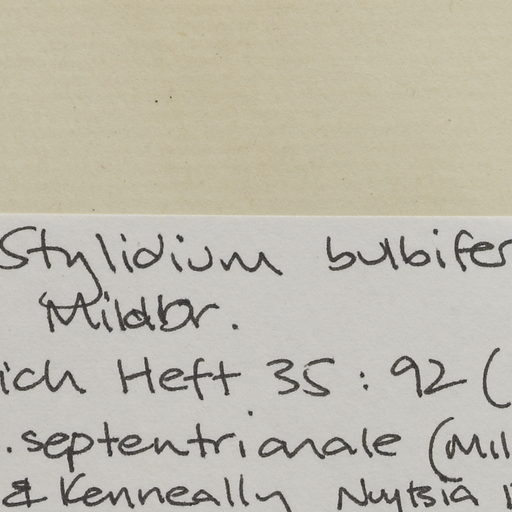 Stylidium bulbifer
Mildbr.
ich Heft 35 : 92 (
. septentrionale (Mil
& Kenneally Nuytsia